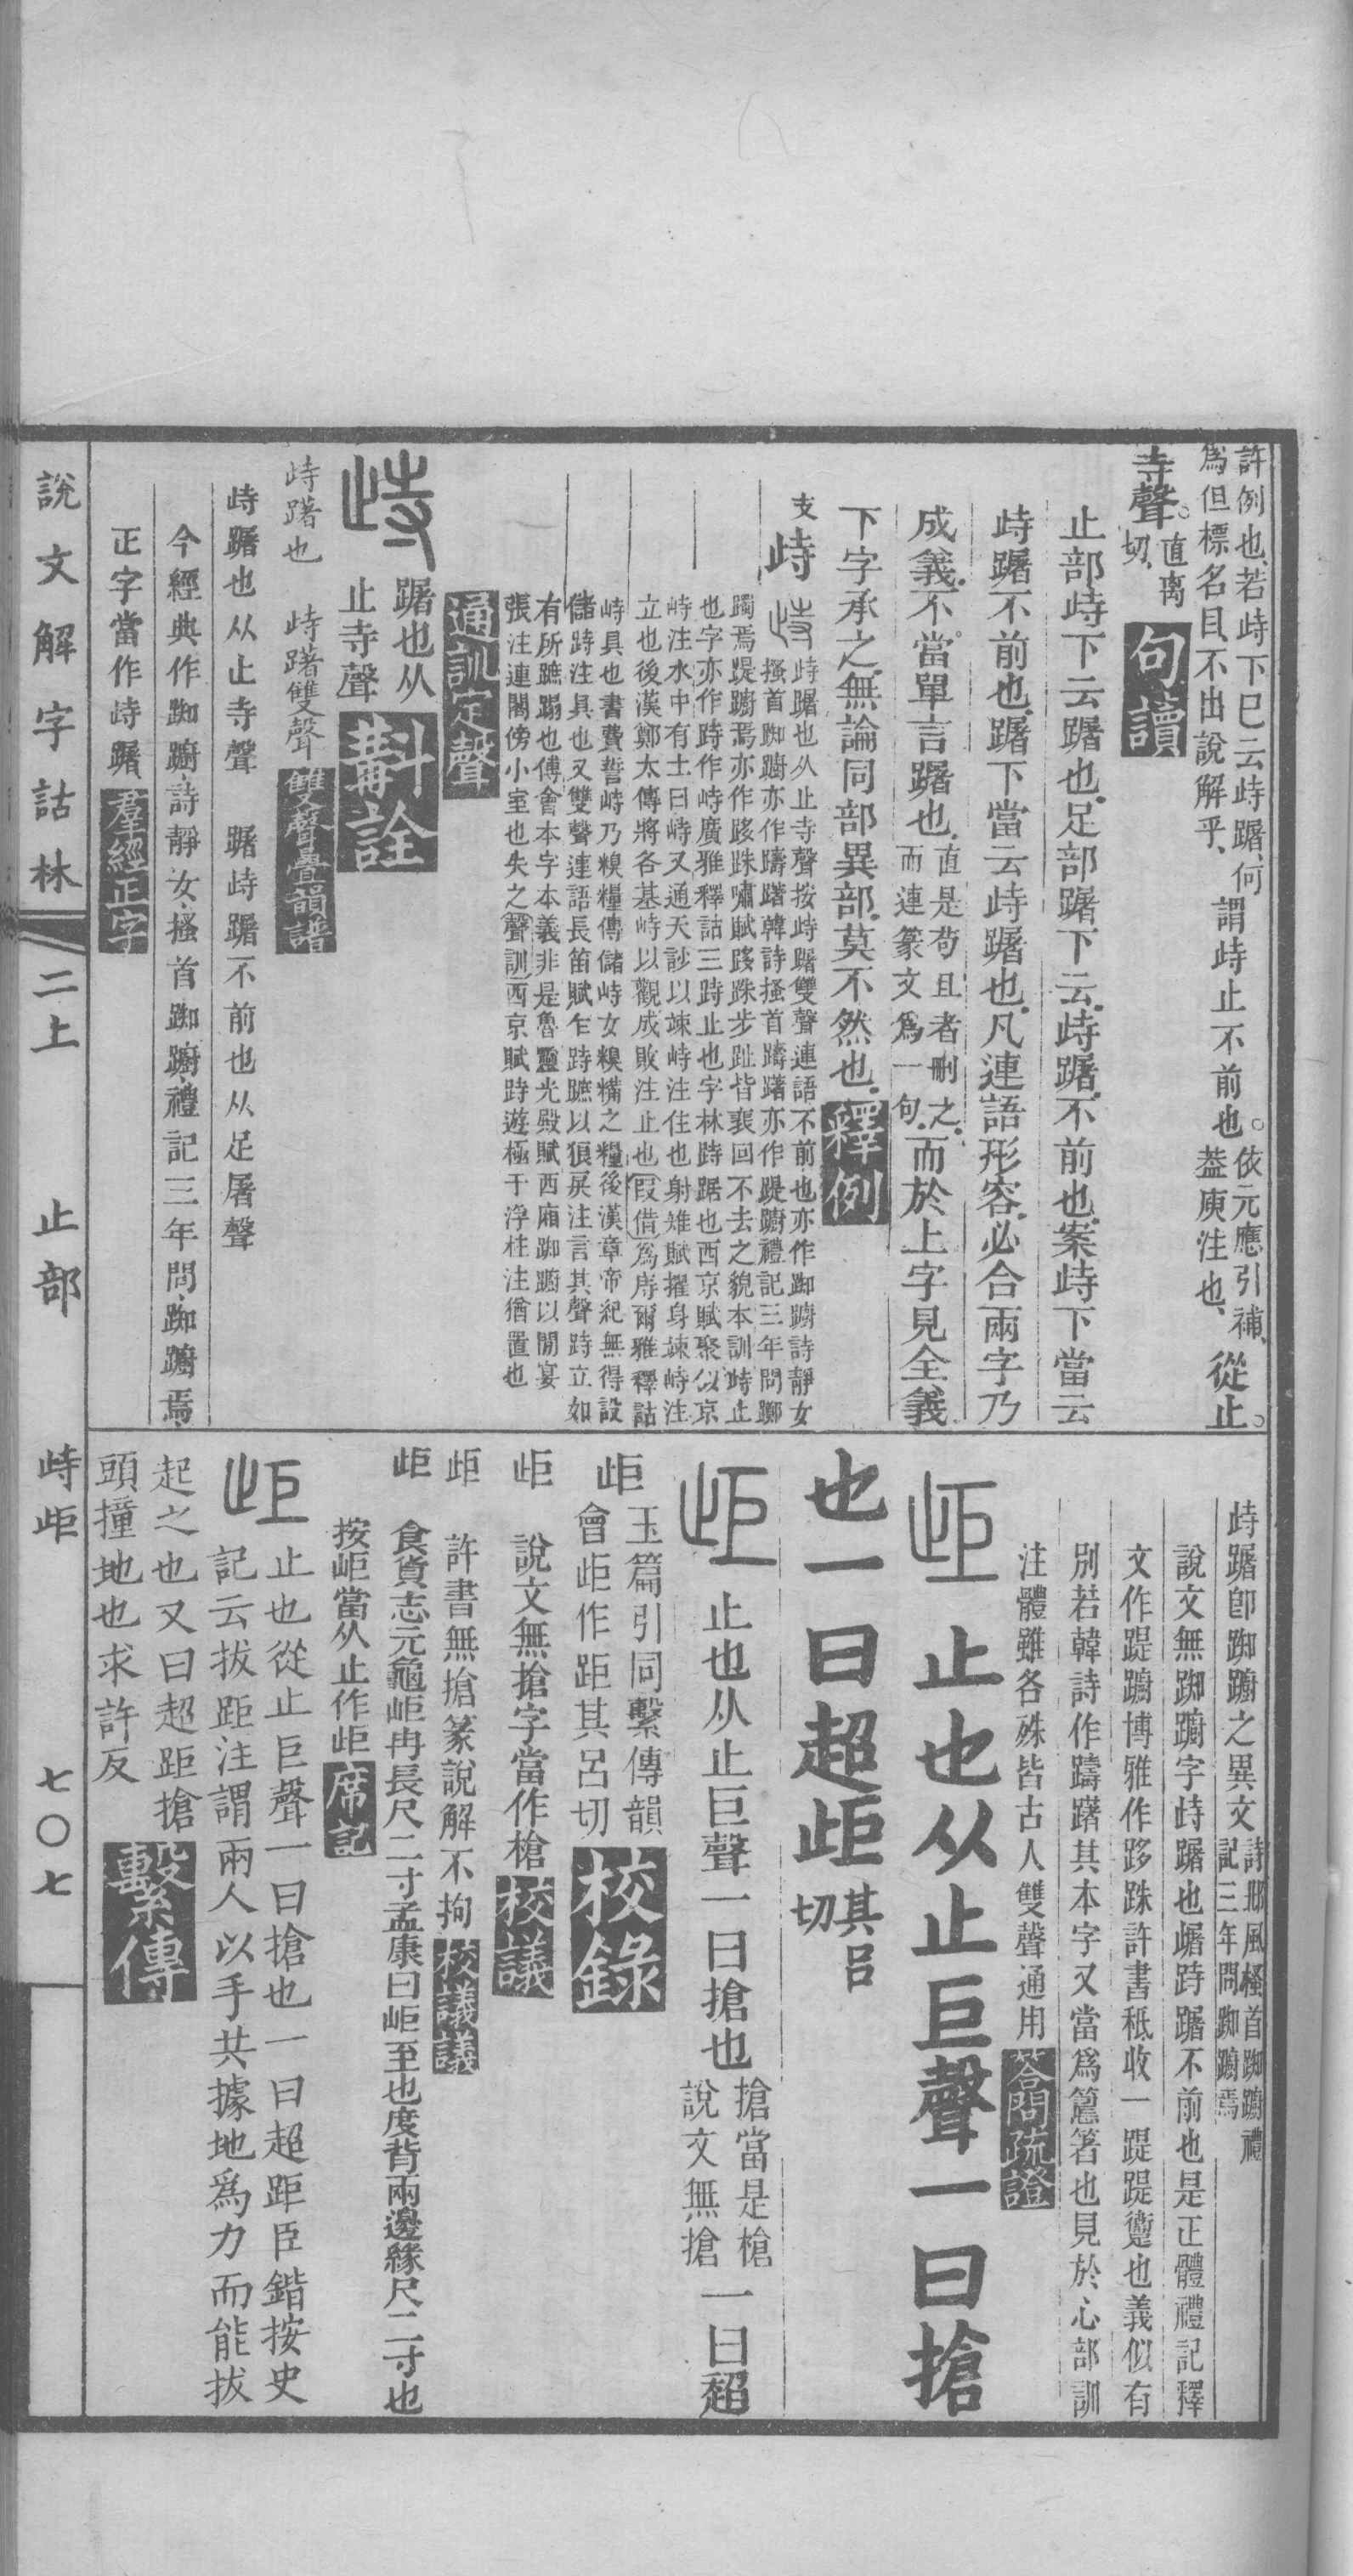 許例也、若歭下已云歭䠧、何
爲但標名目、不出說解乎、
謂歭止不前也。
依元應引補、
葢庾注也、
從止。
寺聲。
直离
切、
句讀
止部歭下云䠧也、足部䠧下云、歭䠧、不前也、案歭下當云
歭䠧不前也、䠧下當云歭䠧也、凡連語形容、必合兩字乃
成義、不當單言䠧也、
直是苟且者刪之、
而連篆文爲一句、
而於上字見全義、
下字承之、無論同部異部、莫不然也、
釋例
支
歭
歭䠧也从止寺聲按歭䠧雙聲連語不前也亦作踟躕詩靜女
搔首踟躕亦作躊躇韓詩搔首躊躇亦作踶躕禮記三年問躑
躅焉踶躕焉亦作跢跦嘯賦跢跦步趾皆裵回不去之貌本訓歭止
也字亦作跱作峙廣雅釋詁三跱止也字林跱踞也西京賦聚似京
峙注水中有土曰峙又通天訬以竦峙注住也射雉賦擢身竦峙注
立也後漢鄭太傳將各基峙以觀成敗注止也
叚借
爲庤爾雅釋詁
峙具也書費誓峙乃糗糧傳儲峙女糗糒之糧後漢章帝紀無得設
儲跱注具也又雙聲連語長笛賦乍跱蹠以狼戾注言其聲跱立如
有所蹠蹋也傅會本字本義非是魯靈光殿賦西廂踟躕以閒宴
張注連閣傍小室也失之
聲訓
西京賦跱遊極于浮柱注猶置也
通訓定聲
䠧也从
止寺聲
斠詮
歭躇也
歭躇雙聲
雙聲疊韻譜
歭䠧也从止寺聲
䠧歭䠧不前也从足屠聲
今經典作踟躕、詩靜女、搔首踟躕、禮記三年問、踟躕焉、
正字當作歭䠧
羣經正字
歭䠧卽踟躕之異文
詩邶風搔首踟躕禮
記三年問踟躕焉
說文無踟躕字歭䠧也䠧跱䠧不前也是正體禮記釋
文作踶躕博雅作跢跦許書秪收一踶踶躗也義似有
別若韓詩作躊躇其本字又當爲𢥞箸也見於心部訓
注體雖各殊皆古人雙聲通用
答問疏證
歫
止也从止巨聲一曰搶
也一曰超歫
其呂
切
歫
止也从止巨聲一曰搶也
搶當是槍
說文無搶
一曰超
歫
玉篇引同繫傳韻
會歫作距其呂切
校錄
歫
說文無搶字當作槍
校議
歫
許書無搶篆說解不拘
校議議
歫
食貨志元龜岠冉長尺二寸孟康曰岠至也度背兩邊緣尺二寸也
按岠當从止作歫
席記
歫
止也從止巨聲一曰搶也一曰超距臣鍇按史
記云拔距注謂兩人以手共據地爲力而能拔
起之也又曰超距搶
頭撞地也求許反
繫傳
說文解字詁林
二上
止部
歭歫
七〇七